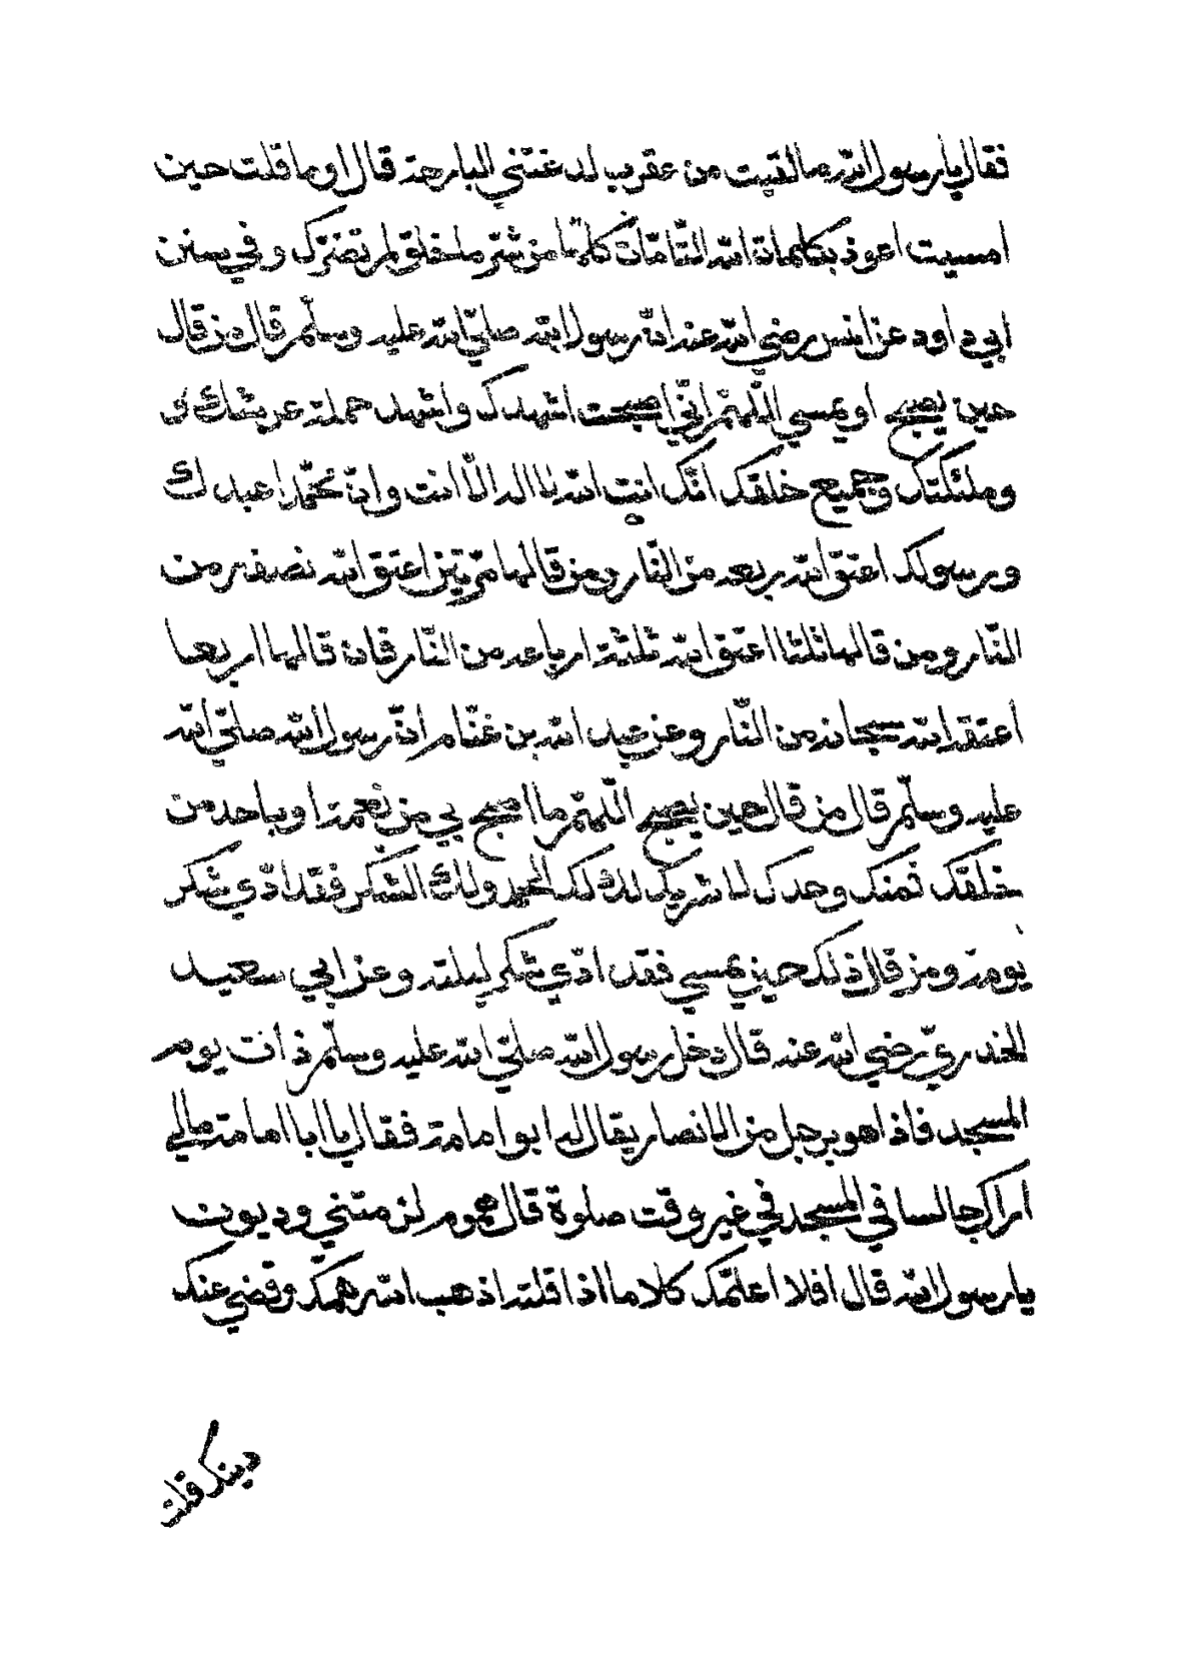 فقال يا رسول الله ما لقيت من عقرب لدغتني البارحة قال اوما قلت حين
امسيت اعوذ بكلمات الله التّامّات كلّها من شرّ ما خلق لم تضرّك وفي سنن
ابي داود عن انس رضي الله عنه انّ رسول الله صلّي الله عليه وسلّم قال من قال
حين يصبح او يمسي اللّهمّ انّي اصبحت اشهدك واشهد حملة عرشك
وملئكتك وجميع خلقك انّك انت الله لا اله الّا انت وانّ محمّدا عبدك
ورسولك اعتق الله ربعه من النّار ومن قالها مرّتين اعتق الله نصفه من
النّار ومن قالها ثلثا اعتق الله ثلثة ارباعه من النّار فان قالها اربعا
اعتقه الله سبحانه من النّار وعن عبد الله بن غنّام انّ رسول الله صلّي الله
عليه وسلّم قال من قال حين يصبح اللّهمّ ما اصبح بي من نعمة او باحد من
خلقك فمنك وحدك لا شريك لك لك الحمد ولك الشكر فقد ادّي شكر
يومه ومن قال ذلك حين يمسي فقد ادّي شكر ليلته وعن ابي سعيد
الخدريّ رضي الله عنه قال دخل رسول الله صلّي الله عليه وسلّم ذات يوم
المسجد فاذا هو برجل من الانصار يقال له ابو امامة فقال يا ابا امامة مالي
اراك جالسا في المسجد في غير وقت صلوة قال هموم لزمتني وديون
يا رسول الله قال افلا اعلّمك كلاما اذا قلته اذهب الله همّك وقضي عنك
دينك قلت